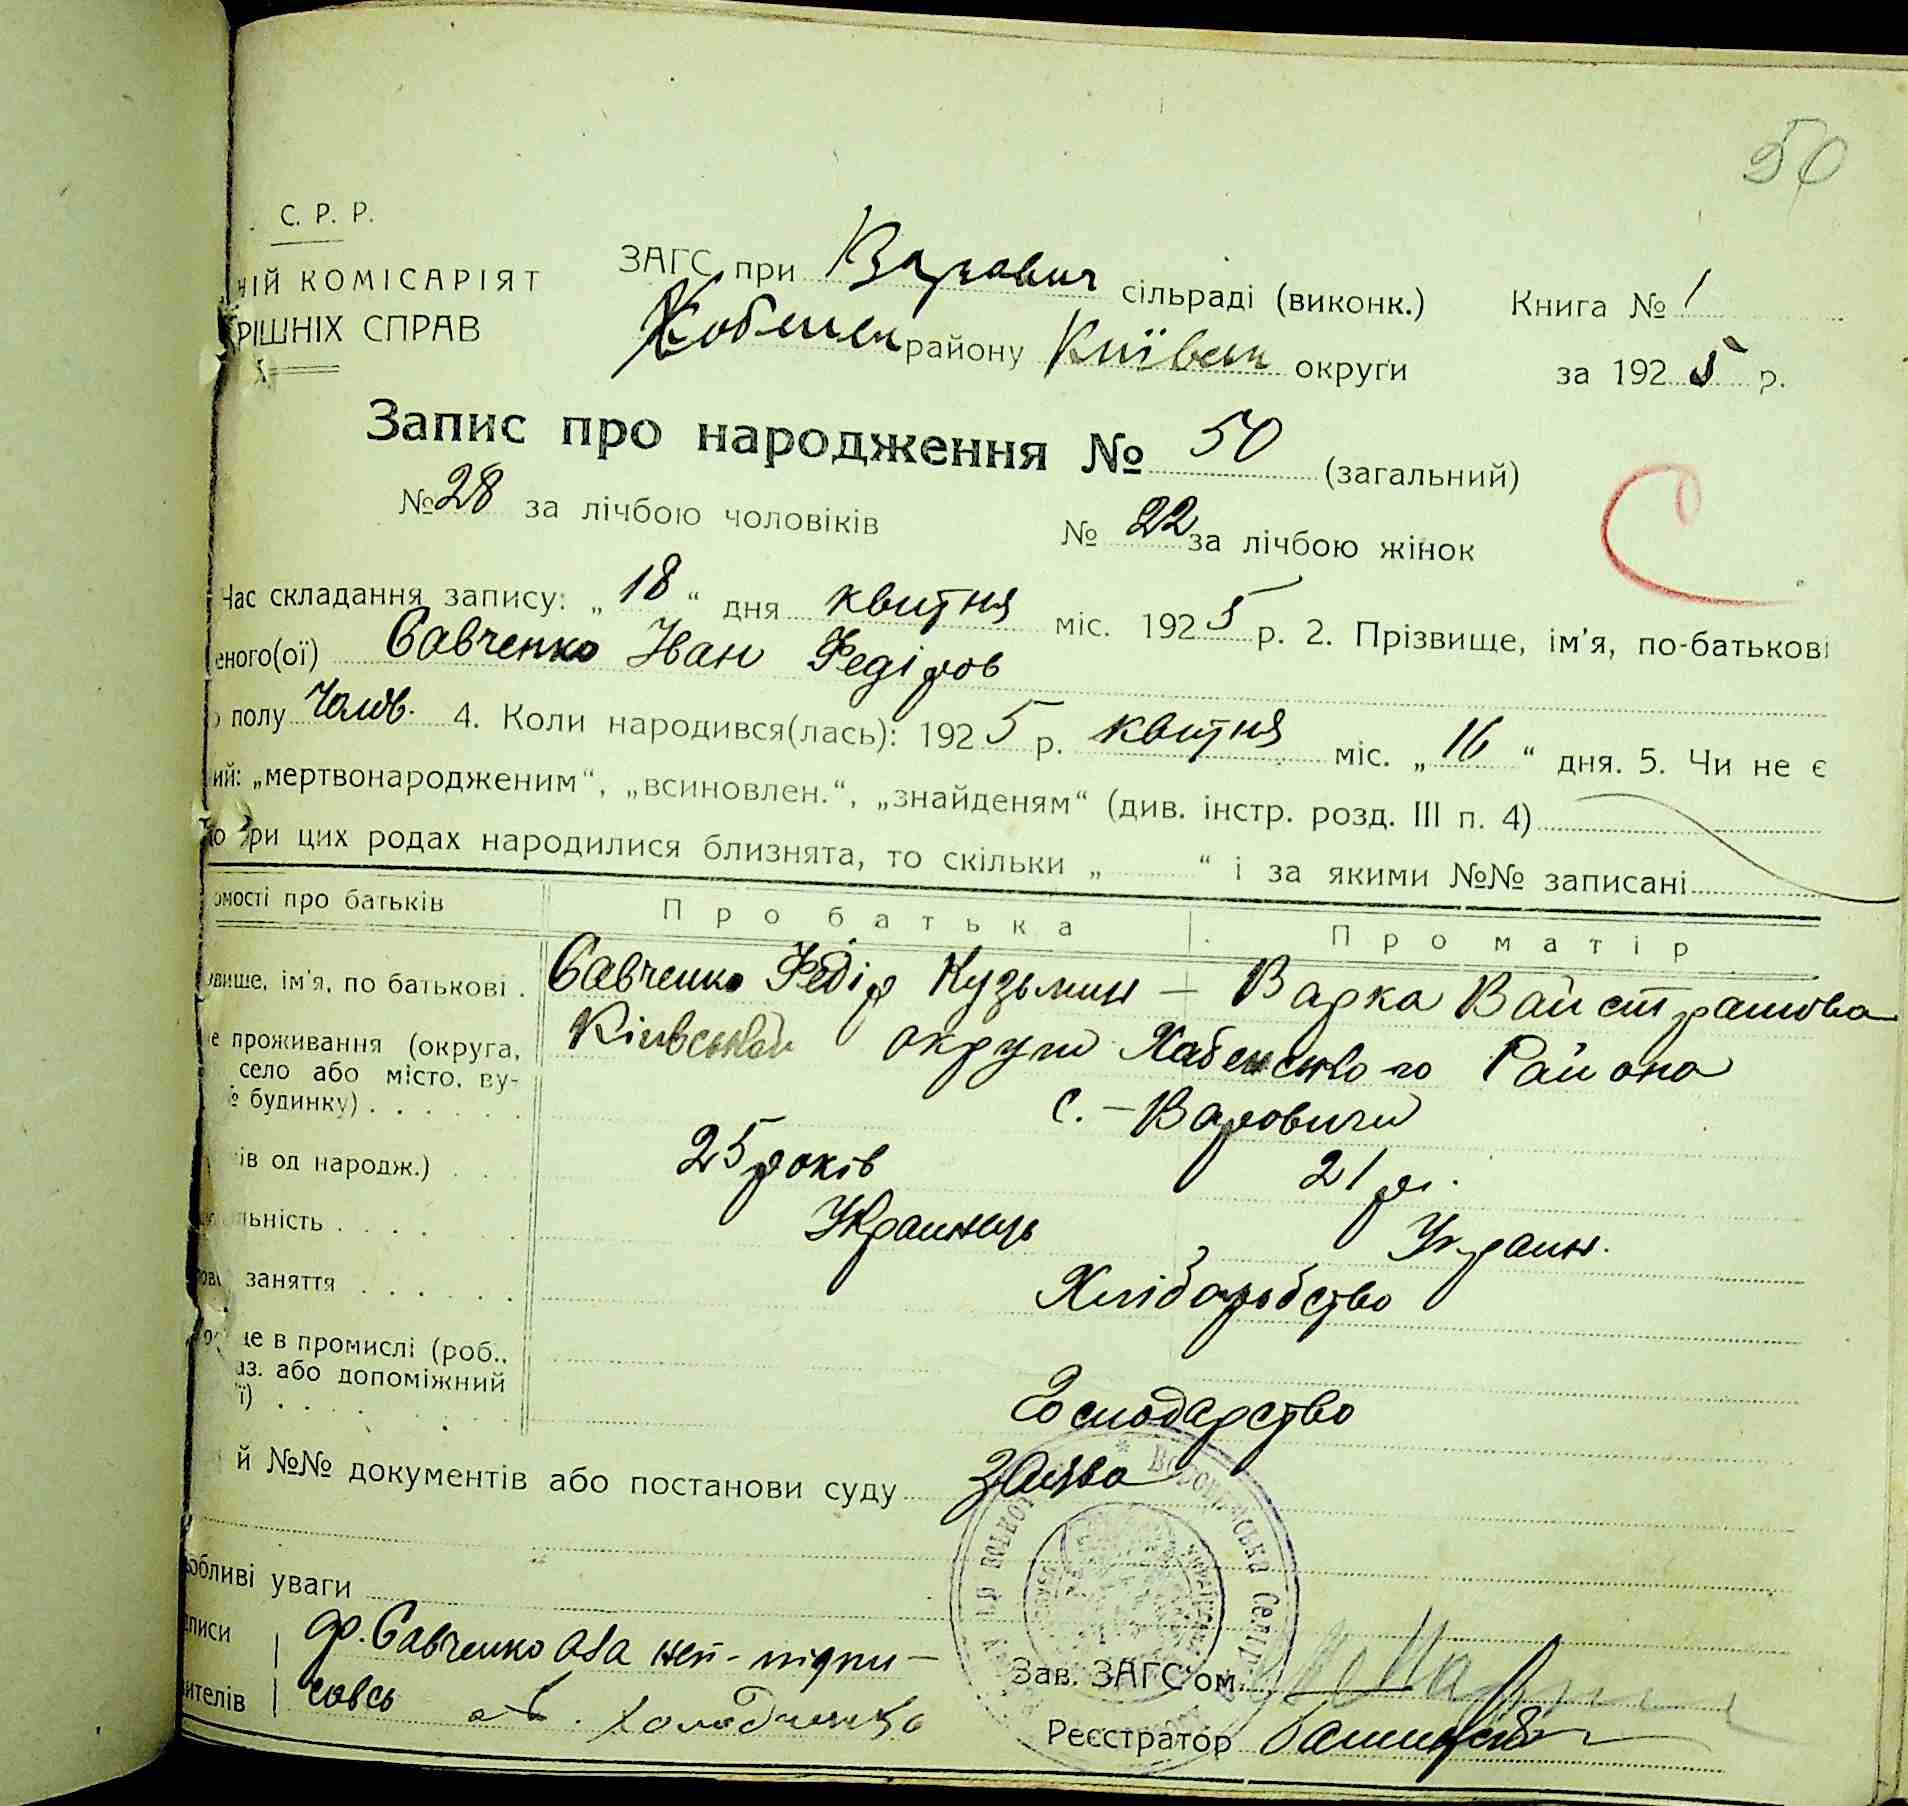 50
С. Р. Р.
НІЙ КОМІСАРІЯТ
РІШНІХ СПРАВ
ЗАГС при Варович сільраді (виконк.) Книга № 1
Хабенск району Київськ округи за 1925 р.
Запис про народження № 50 (загальний)
№ 28 за лічбою чоловіків № 22 за лічбою жінок
Час складання запису: „18“ дня квітня міс. 1925 р. 2. Прізвище, ім'я, по-батькові
еного(ої) Савченко Іван Федіров
полу Чолов. 4. Коли народився(лась): 1925 р. квітня міс. „16“ дня. 5. Чи не є
ий: „мертвонародженим“, „всиновлен.“, „знайденям“ (див. інстр. розд. III п. 4)
о при цих родах народилися близнята, то скільки „ “ і за якими №№ записані
омості про батьків Про батька Про матір
звище, ім'я, по батькові . Савченко Федір Кузьмин — Варка Вайстрашова
е проживання (округа, Київськой округи Хабенського Района
село або місто, ву-
№ будинку) . . . . . . с. — Варовичи
ів од народж.) . . 25 років 21 р.
льність . . . . Украинець Украин.
заняття . . . . . . Хліборобство
це в промислі (роб.,
аз. або допоміжний
ї) . . . . . . Господарство
й №№ документів або постанови суду Заява
обливі уваги
писи гр. Савченко
вителів совсь
Зав. ЗАГС'ом
Реєстратор